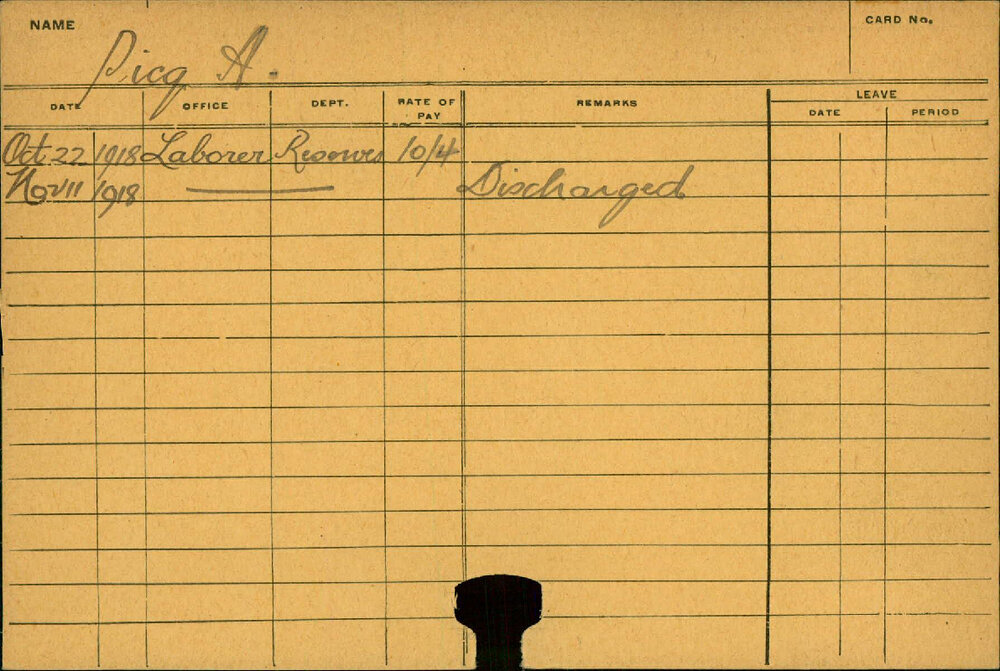 NAME
Picq A.
CARD No.
DATE OFFICE DEPT. RATE OF PAY REMARKS LEAVE
DATE PERIOD
Oct 22 1918 Laborer Reserves 10/4
Nov 11 1918 Discharged